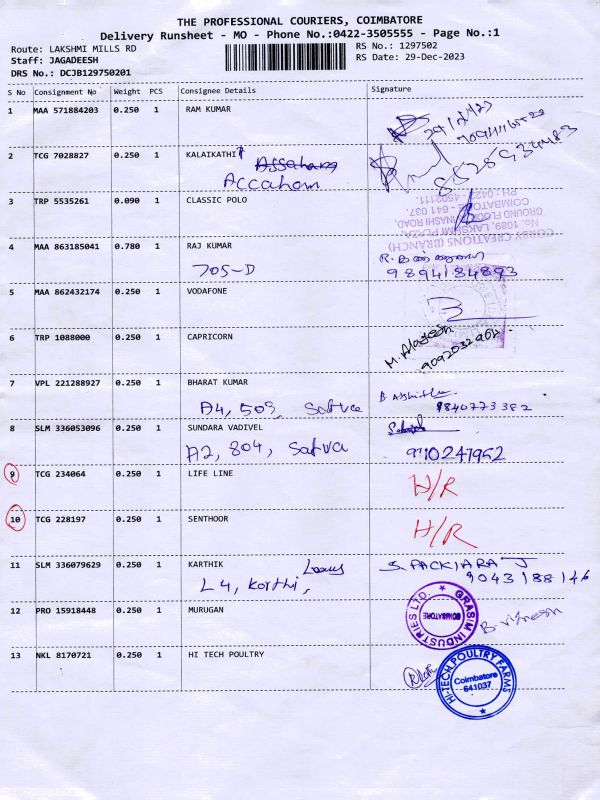 THE PROFESSIONAL COURIERS, COIMBATORE
Delivery Runsheet - MO - Phone No.:0422-3505555 - Page No.:1
Route: LAKSHMI MILLS RD
Staff: JAGADEESH
DRS No.: DCJB129750201
RS No.: 1297502
RS Date: 29-Dec-2023
S No Consignment No Weight PCS Consignee Details Signature
1 MAA 571884203 0.250 1 RAM KUMAR
2 TCG 7028827 0.250 1 KALAIKATHI
Accahom
3 TRP 5535261 0.090 1 CLASSIC POLO
COIMBATORE - 641 037.
GROUND FLOOR,
No. 1089, LAKSHMI PLAZA,
CREATIONS (BRANCH)
4 MAA 863185041 0.780 1 RAJ KUMAR
705-D
9894184893
5 MAA 862432174 0.250 1 VODAFONE
6 TRP 1088000 0.250 1 CAPRICORN
7 VPL 221288927 0.250 1 BHARAT KUMAR
A4, 503, Satva
9840773382
8 SLM 336053096 0.250 1 SUNDARA VADIVEL
A2, 804, Satva
9710247952
9 TCG 234064 0.250 1 LIFE LINE H/R
10 TCG 228197 0.250 1 SENTHOOR H/R
11 SLM 336079629 0.250 1 KARTHIK S. PACKIARAJ
L4, Karthi,
9043188146
12 PRO 15918448 0.250 1 MURUGAN
GRASIM INDUSTRIES LTD. COIMBATORE
13 NKL 8170721 0.250 1 HI TECH POULTRY
HI-TECH POULTRY FARMS
Coimbatore
641037